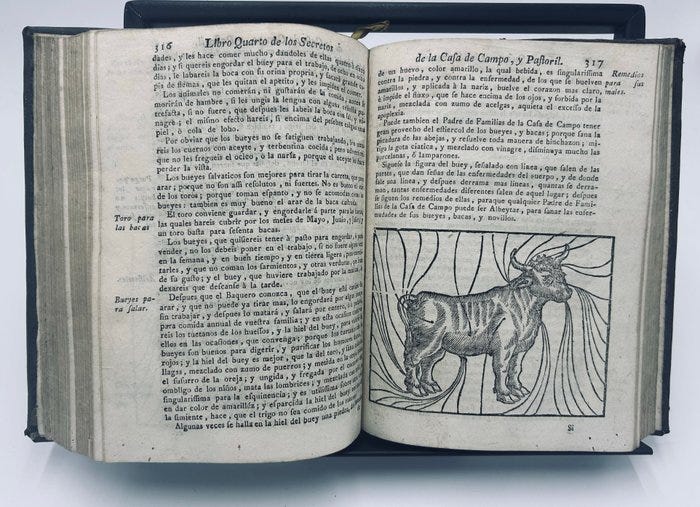 316 Libro Quarto de los Secretos
dades, y les hace comer mucho, dandoles de ellas quatro
dias; y si quereis engordar el buey para el trabajo, de ocho en ocho
dias, le labareis la boca con su orina propria, y sacará grande co-
pia de flemas, que les quitan el apetito, y les impiden el comer.
Los animales no comerán, ni gustarán de la comida, antes se
morirán de hambre, si les untais la lengua con alguna cosa pu-
trefacta, si no fuere, que despues les labeis la boca con sal, y vi-
nagre; el mismo efecto hareis, si encima del pesebre colgais una
piel, ò cola de lobo.
Por obviar que los bueyes no se fatiguen trabajando, les unta-
reis los cuernos con aceyte, y terbentina cocida; pero advertid
que no les fregueis el ocico, ò la narsa, porque el aceyte les hace
perder la vista.
Los bueyes salvaticos son mejores para tirar la carreta, que para
arar; porque no son assi resolutos, ni fuertes. No es bueno el arar
de los toros; porque toman espanto, y no se acomodan como los
bueyes: tambien es muy bueno el arar de la boca cabril.
Toro para las bacas
El toro conviene guardar, y engordarle à parte para las bacas,
las quales hareis cubrir por los meses de Mayo, Junio, y
un toro basta para sesenta bacas.
Los bueyes, que quisiereis tener à pasto para engordar, y
vender, no los debeis poner en el trabajo, si no fuere alguna
en la semana, y en buen tiempo, y en tierra ligera,
tarles, y que no coman los sarmientos, y otras verduras,
de su gusto; y el buey, que huviere trabajado por la mañana,
dexareis que descanse à la tarde.
Bueyes pa-
ra salar.
Despues que el Baquero conozca, que el buey está cansado de
arar, y que no puede ya tirar mas, lo engordará por algun tiempo,
sin trabajar, y despues lo matará, y salará por entero,
para comida annual de vuestra familia; y en esta ocasion
reis los tuetanos de los huessos, y la hiel del buey, para
ellos en las ocasiones, que convenga; porque los tuetanos de los
bueyes son buenos para digerir, y purificar los humores
rojos; y la hiel del buey es mejor, que la del toro, y sana las
llagas, mezclado con zumo de puerros; y metida en la oreja,
el susurro de la oreja; y ungida, y fregada por el
ombligo de los niños, mata las lombrices; y mezclada
singularissima para la esquinencia; y es utilissima
en dar color de amarilléz; y esparcida la hiel del buey
la simiente, hace, que el trigo no sea comido de los
Algunas veces se halla en la hiel del buey una piedra,
de la Casa de Campo, y Pastoril. 317
de un huevo, color amarillo, la qual bebida, es singularissima
contra la piedra, y contra la enfermedad, de los que se buelven
amarillos, y aplicada à la nariz, buelve el corazon mas claro,
è impide el fluxo, que se hace encima de los ojos, y sorbida por la
nariz, mezclada con zumo de acelgas, aquieta el excesso de la
apoplexia.
Remedios
para sus
males.
Puede tambien el Padre de Familias de la Casa de Campo tener
gran provecho del estiercol de los bueyes, y bacas; porque sana la
picadura de las abejas, y resuelve toda manera de binchazon; mi-
tiga la gota ciatica, y mezclado con vinagre, disminuya mucho las
porcelanas, ò lamparones.
Siguese la figura del buey, señalado con linea, que salen de las
partes, que dan señas de las enfermedades del cuerpo, y de donde
sale una linea, y despues derrama mas lineas, quantas se derra-
man, tantas enfermedades diferentes salen de aquel lugar; despues
se siguen los remedios de ellas, paraque qualquier Padre de Fami-
lias de la Casa de Campo puede ser Albeytar, para sanar las enfer-
medades de sus bueyes, bacas, y novillos.
Si